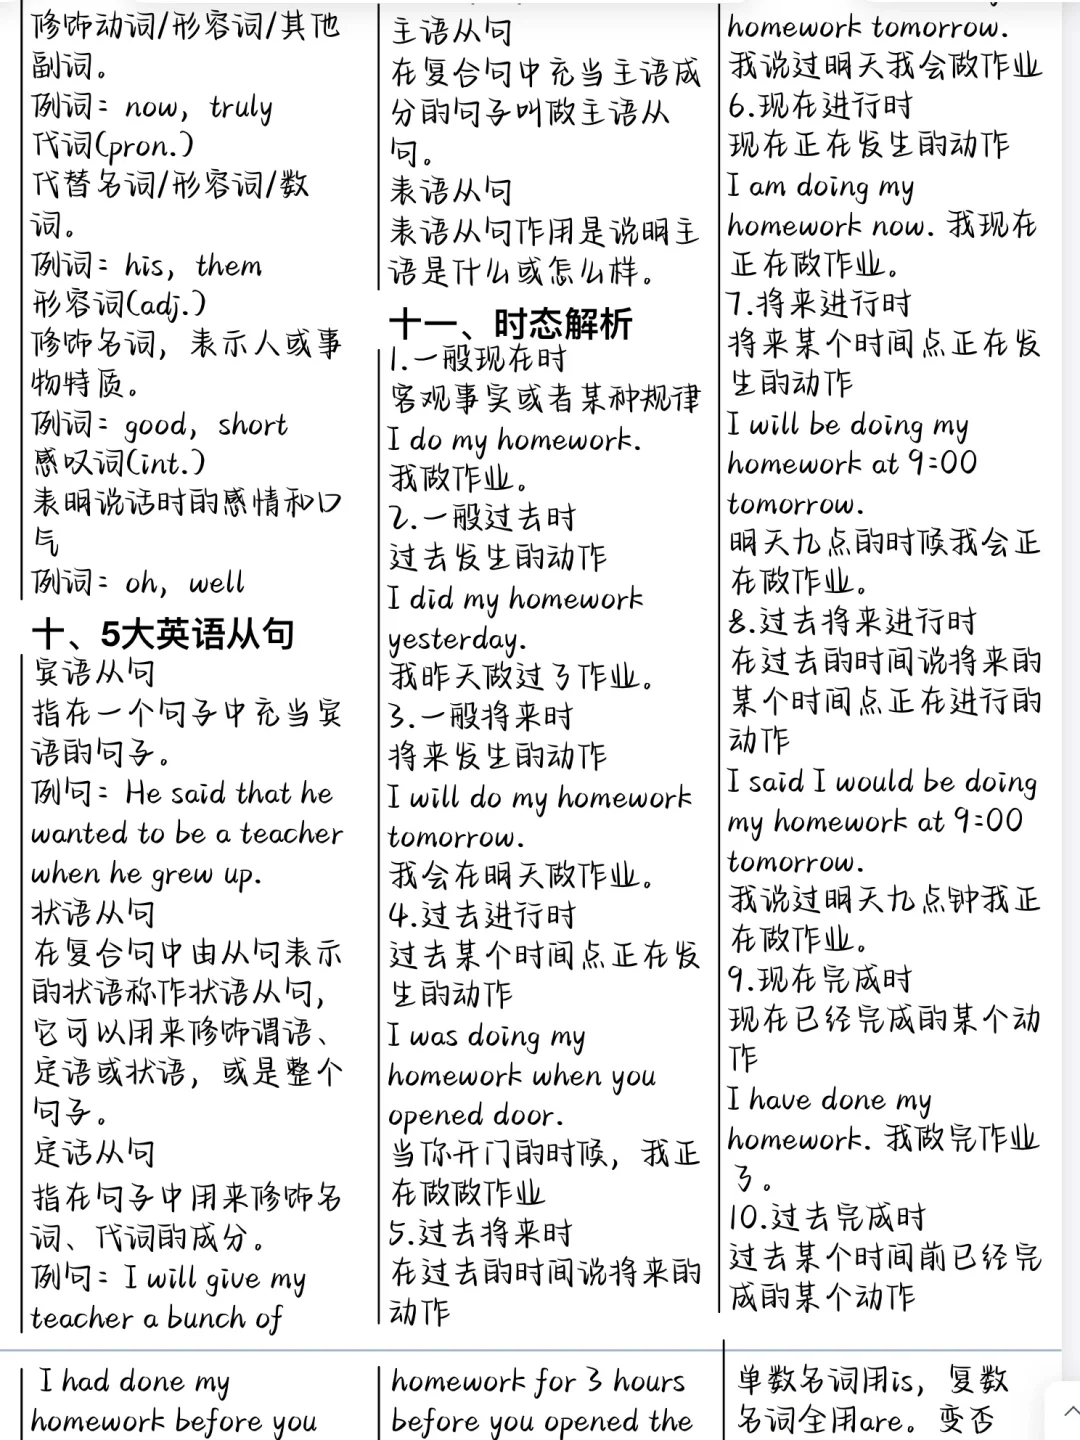 修饰动词/形容词/其他
副词。
例词：now，truly
代词(pron.)
代替名词/形容词/数
词。
例词：his，them
形容词(adj.)
修饰名词，表示人或事
物特质。
例词：good，short
感叹词(int.)
表明说话时的感情和口
气
例词：oh，well
十、5大英语从句
宾语从句
指在一个句子中充当宾
语的句子。
例句：He said that he
wanted to be a teacher
when he grew up.
状语从句
在复合句中由从句表示
的状语称作状语从句，
它可以用来修饰谓语、
定语或状语，或是整个
句子。
定话从句
指在句子中用来修饰名
词、代词的成分。
例句：I will give my
teacher a bunch of
主语从句
在复合句中充当主语成
分的句子叫做主语从
句。
表语从句
表语从句作用是说明主
语是什么或怎么样。
十一、时态解析
1.一般现在时
客观事实或者某种规律
I do my homework.
我做作业。
2.一般过去时
过去发生的动作
I did my homework
yesterday.
我昨天做过了作业。
3.一般将来时
将来发生的动作
I will do my homework
tomorrow.
我会在明天做作业。
4.过去进行时
过去某个时间点正在发
生的动作
I was doing my
homework when you
opened door.
当你开门的时候，我正
在做做作业
5.过去将来时
在过去的时间说将来的
动作
homework tomorrow.
我说过明天我会做作业
6.现在进行时
现在正在发生的动作
I am doing my
homework now. 我现在
正在做作业。
7.将来进行时
将来某个时间点正在发
生的动作
I will be doing my
homework at 9:00
tomorrow.
明天九点的时候我会正
在做作业。
8.过去将来进行时
在过去的时间说将来的
某个时间点正在进行的
动作
I said I would be doing
my homework at 9:00
tomorrow.
我说过明天九点钟我正
在做作业。
9.现在完成时
现在已经完成的某个动
作
I have done my
homework. 我做完作业
了。
10.过去完成时
过去某个时间前已经完
成的某个动作
I had done my
homework before you
homework for 3 hours
before you opened the
单数名词用is，复数
名词全用are。变否